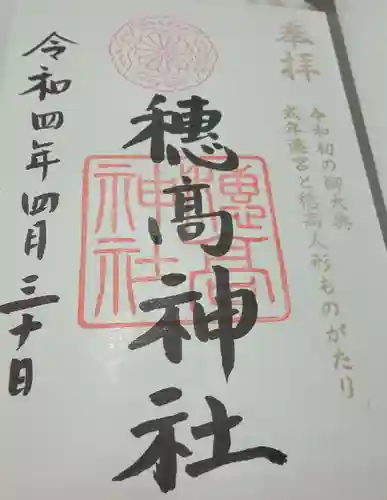 奉拝
令和初の御大典
式年遷宮と穂高人形ものがたり
穂髙神社
穂高神社
令和四年四月三十日